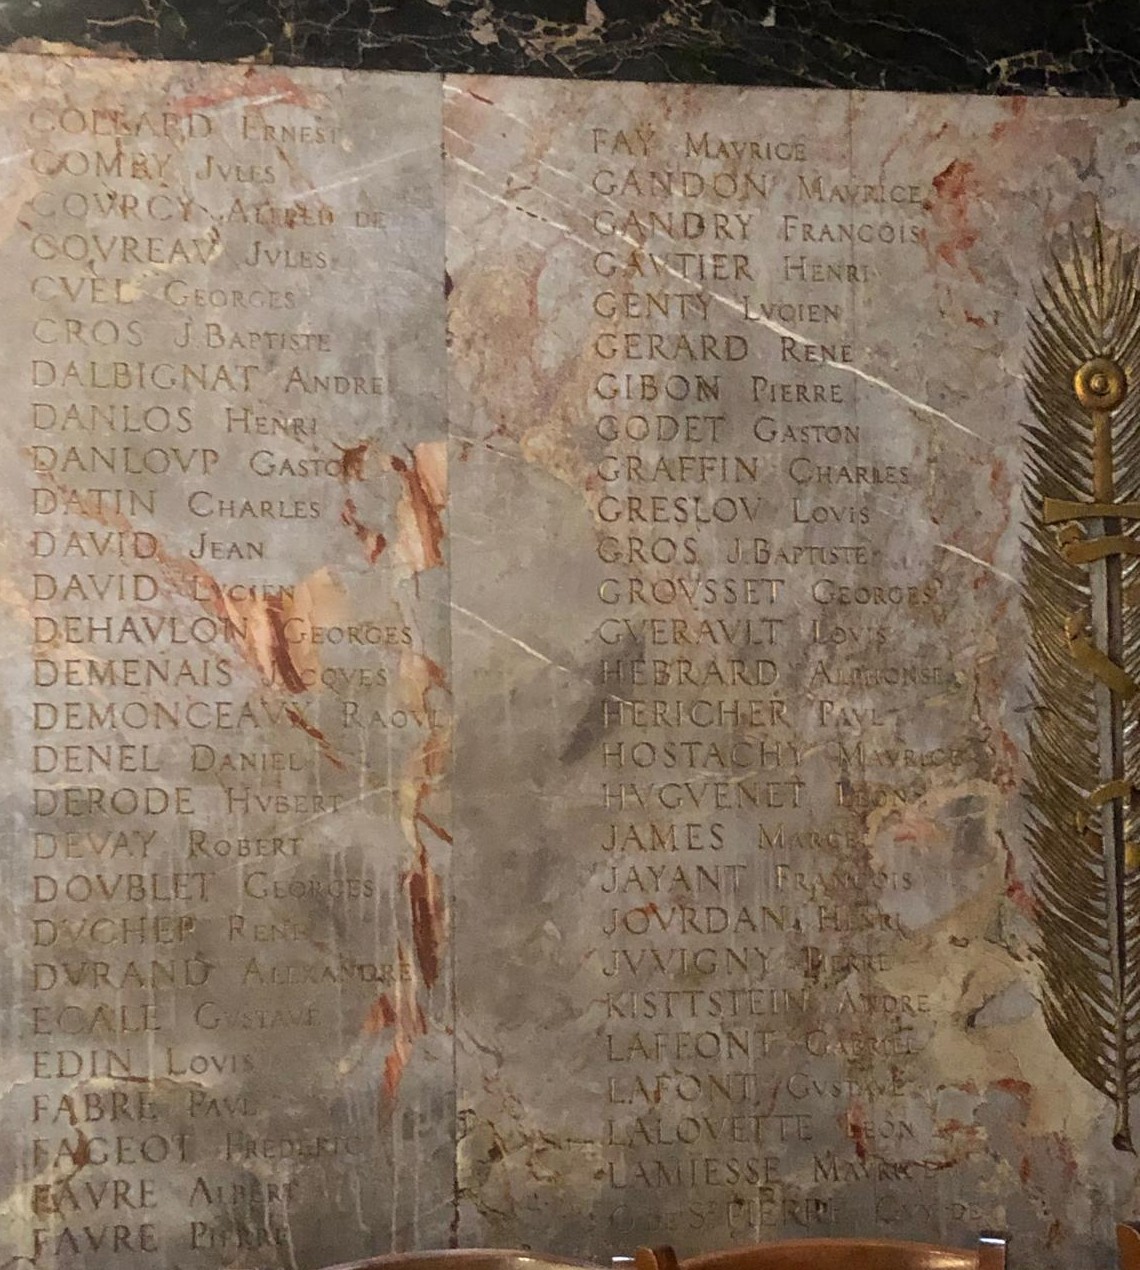 COLLARD ERNEST
COMBY JVLES
COVRCY ALFRED DE
COVREAV JVLES
CVEL GEORGES
CROS J.BAPTISTE
DALBIGNAT ANDRE
DANLOS HENRI
DANLOVP GASTON
DATIN CHARLES
DAVID JEAN
DAVID LVCIEN
DEHAVLON GEORGES
DEMENAIS JACQVES
DEMONCEAVX RAOVL
DENEL DANIEL
DERODE HVBERT
DEVAY ROBERT
DOVBLET GEORGES
DVCHER RENE
DVRAND ALEXANDRE
ECALE GVSTAVE
EDIN LOVIS
FABRE PAVL
FAGEOT FREDERIC
FAVRE ALBERT
FAVRE PIERRE
FAY MAVRICE
GANDON MAVRICE
GANDRY FRANÇOIS
GAVTIER HENRI
GENTY LVCIEN
GERARD RENE
GIBON PIERRE
GODET GASTON
GRAFFIN CHARLES
GRESLOV LOVIS
GROS J.BAPTISTE
GROVSSET GEORGES
GVERAVLT LOVIS
HEBRARD ALPHONSE
HERICHER PAVL
HOSTACHY MAVRICE
HVGVENET LEON
JAMES MARCEL
JAYANT FRANÇOIS
JOVRDAN HENRI
JVVIGNY PIERRE
KISTTSTEIN ANDRE
LAFFONT GABRIEL
LAFONT GVSTAVE
LALOVETTE LEON
LAMIESSE MAVRICE
DE ST PIERRE GVY DE